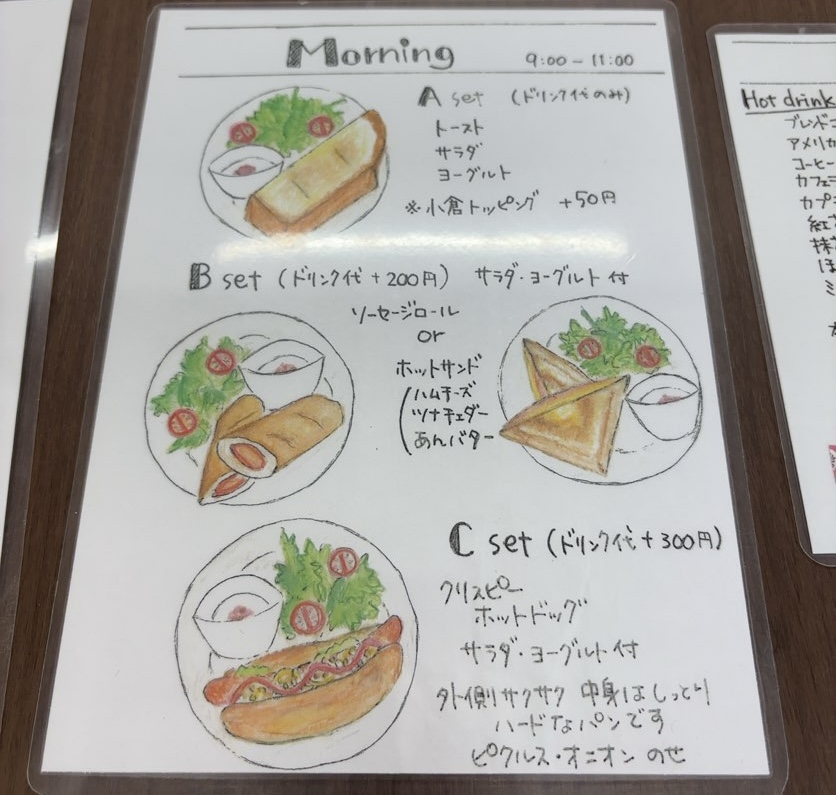 Morning 9:00-11:00
A set (ドリンク代のみ)
トースト
サラダ
ヨーグルト
※小倉トッピング +50円
B set (ドリンク代 +200円) サラダ・ヨーグルト付
ソーセージロール
or
ホットサンド
(ハムチーズ
ツナチェダー
あんバター
C set (ドリンク代 +300円)
クリスピー
ホットドッグ
サラダ・ヨーグルト付
外側サクサク 中身はしっとり
ハードなパンです
ピクルス・オニオン のせ
Hot drink
ブレンドコ
アメリカ
コーヒー
カフェラ
カプチ
紅
抹
ほ
ミ